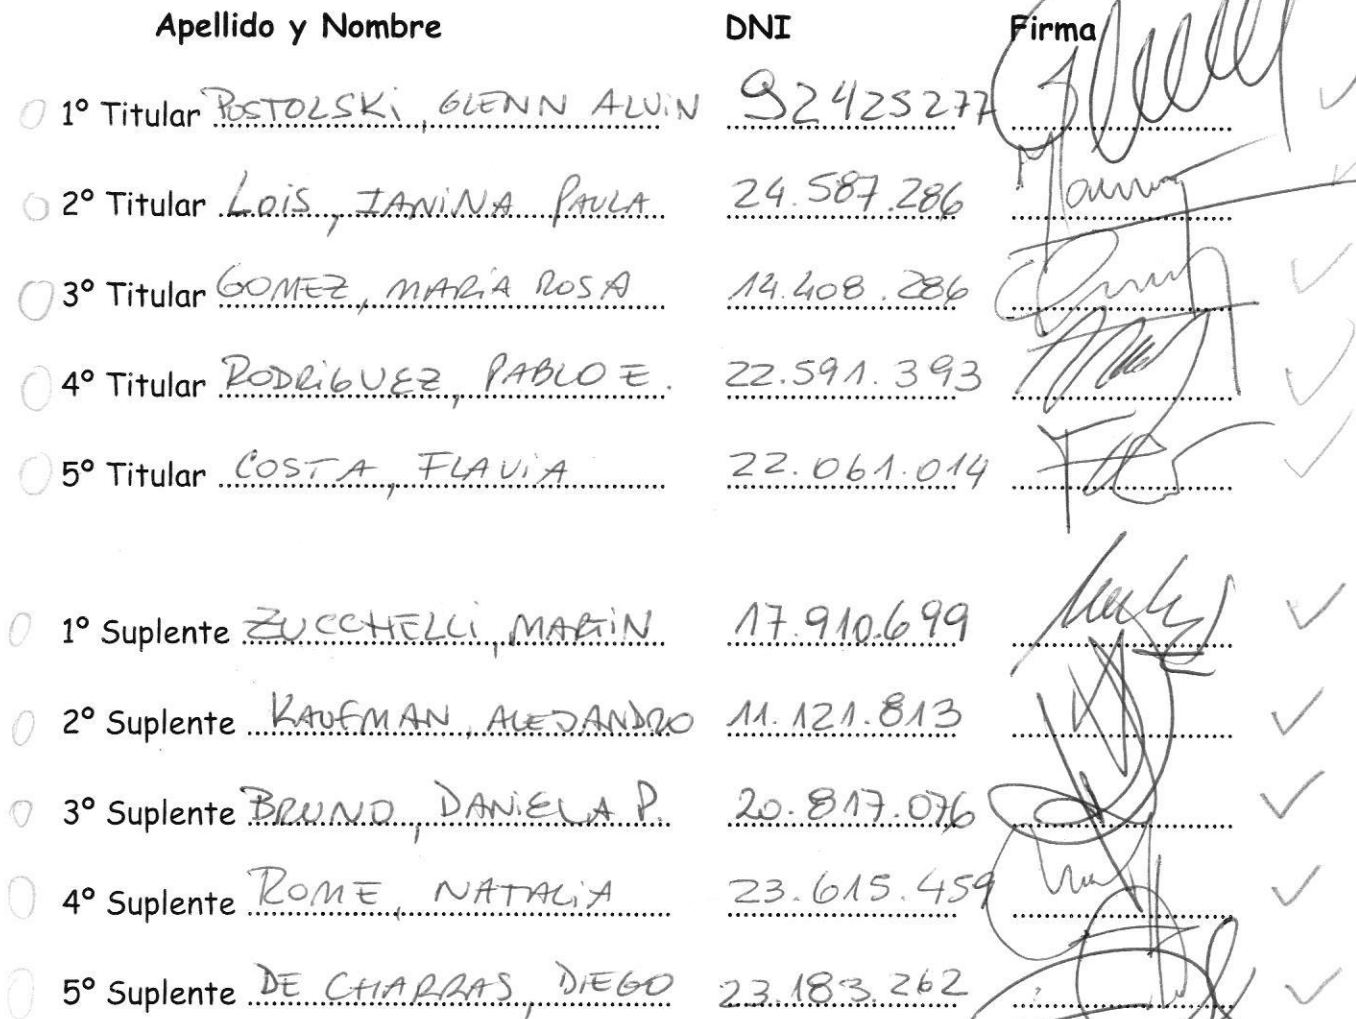 Apellido y Nombre DNI Firma
1º Titular POSTOLSKI, GLENN ALVIN 92425277
2º Titular LOIS, IANINA PAULA 24.587.286
3º Titular GOMEZ, MARÍA ROSA 14.408.286
4º Titular RODRIGUEZ, PABLO E. 22.591.393
5º Titular COSTA, FLAVIA 22.061.014
1º Suplente ZUCCHELLI, MARTIN 17.910.699
2º Suplente KAUFMAN, ALEJANDRO 11.121.813
3º Suplente BRUNO, DANIELA P. 20.817.076
4º Suplente ROMÉ, NATALIA 23.615.459
5º Suplente DE CHARRAS, DIEGO 23.183.262